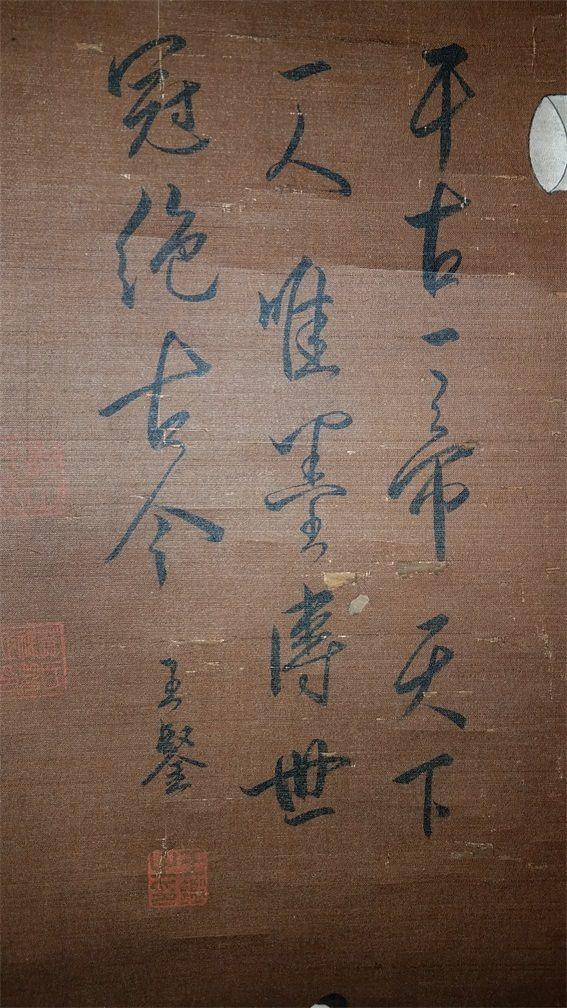 千古一帝天下
一人唯墨传世
冠绝古今
王鉴